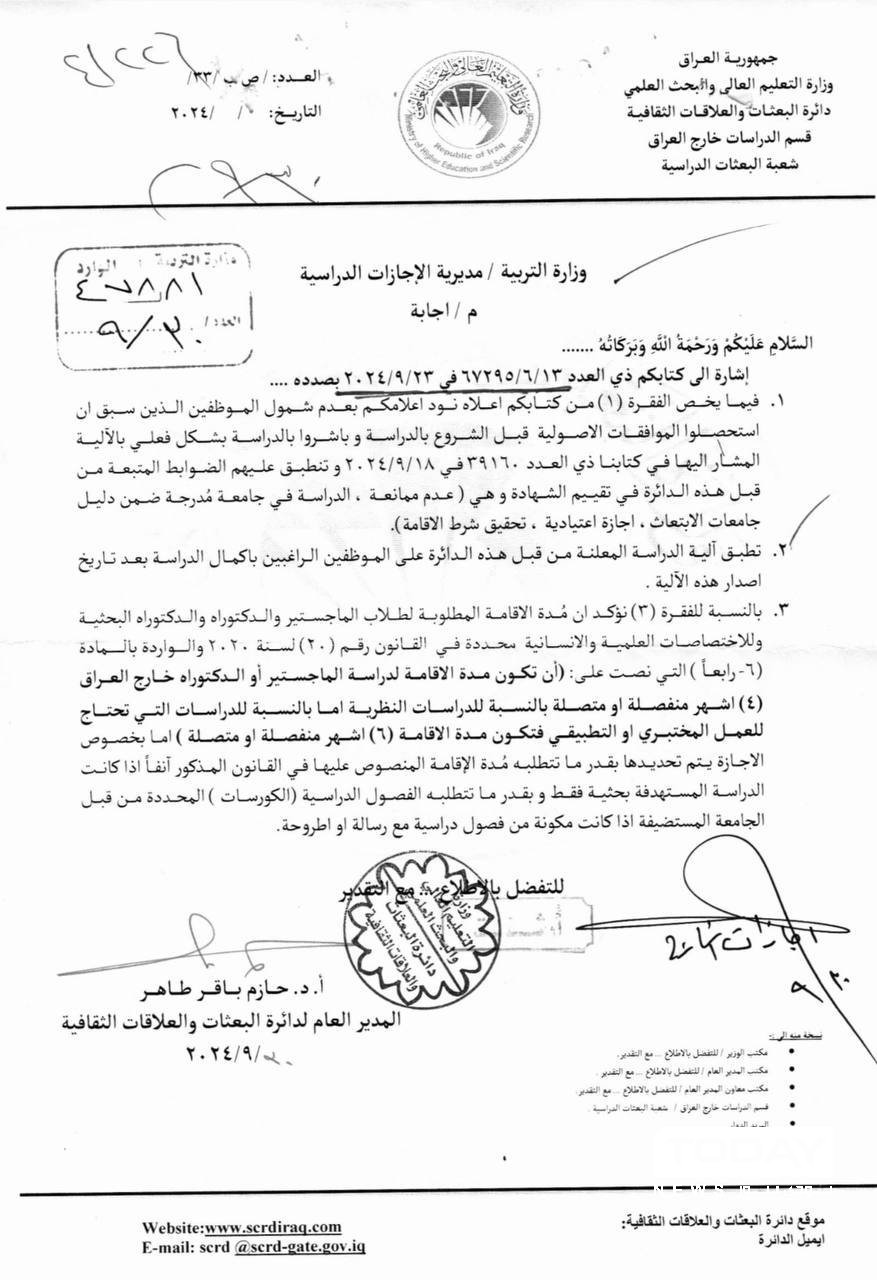 جمهورية العراق
وزارة التعليم العالي والبحث العلمي
دائرة البعثات والعلاقات الثقافية
قسم الدراسات خارج العراق
شعبة البعثات الدراسية
وزارة التعليم العالي والبحث العلمي
Republic of Iraq
Ministry of Higher Education and Scientific Research
العدد: / ص ب /٣٣/
التاريخ: / /٢٠٢٤
وزارة التربية الوارد
٤٠٧٨٨١
العدد/
٩/٣٠
وزارة التربية / مديرية الإجازات الدراسية
م / اجابة
السَّلامِ عَلَيْكُمْ وَرَحْمَةُ اللَّهِ وَبَرَكَاتُهُ .......
إشارة الى كتابكم ذي العدد ٦٧٢٩٥/٦/١٣ في ٢٠٢٤/٩/٢٣ بصدده ....
١. فيما يخص الفقرة (١) من كتابكم اعلاه نود اعلامكم بعدم شمول الموظفين الذين سبق ان
استحصلوا الموافقات الاصولية قبل الشروع بالدراسة و باشروا بالدراسة بشكل فعلي بالآلية
المشار اليها في كتابنا ذي العدد ٣٩١٦٠ في ٢٠٢٤/٩/١٨ و تنطبق عليهم الضوابط المتبعة من
قبل هذه الدائرة في تقييم الشهادة و هي ( عدم ممانعة ، الدراسة في جامعة مُدرجة ضمن دليل
جامعات الابتعاث ، اجازة اعتيادية ، تحقيق شرط الاقامة).
٢. تطبق آلية الدراسة المعلنة من قبل هذه الدائرة على الموظفين الراغبين باكمال الدراسة بعد تاريخ
اصدار هذه الآلية .
٣. بالنسبة للفقرة (٣) نؤكد ان مُدة الاقامة المطلوبة لطلاب الماجستير والدكتوراه والدكتوراه البحثية
وللاختصاصات العلمية والانسانية محددة في القانون رقم (٢٠) لسنة ٢٠٢٠ والواردة بالمادة
(٦- رابعاً) التي نصت على: (أن تكون مدة الاقامة لدراسة الماجستير أو الدكتوراه خارج العراق
(٤) اشهر منفصلة او متصلة بالنسبة للدراسات النظرية اما بالنسبة للدراسات التي تحتاج
للعمل المختبري او التطبيقي فتكون مدة الاقامة (٦) اشهر منفصلة او متصلة ) اما بخصوص
الاجازة يتم تحديدها بقدر ما تتطلبه مُدة الإقامة المنصوص عليها في القانون المذكور آنفاً اذا كانت
الدراسة المستهدفة بحثية فقط و بقدر ما تتطلبه الفصول الدراسية (الكورسات ) المحددة من قبل
الجامعة المستضيفة اذا كانت مكونة من فصول دراسية مع رسالة او اطروحة.
للتفضل بالاطلاع ... مع التقدير
وزارة
التعليم العالي
والبحث العلمي
دائرة البعثات
والعلاقات الثقافية
أ.د. حازم باقر طاهر
المدير العام لدائرة البعثات والعلاقات الثقافية
٢٠٢٤/٩/
٩/٣٠
نسخة منه الى :-
• مكتب الوزير / للتفضل بالاطلاع ... مع التقدير.
• مكتب المدير العام / للتفضل بالاطلاع ... مع التقدير .
• مكتب معاون المدير العام / للتفضل بالاطلاع ... مع التقدير.
• قسم الدراسات خارج العراق / شعبة البعثات الدراسية .
TODAY
NEWS
موقع دائرة البعثات والعلاقات الثقافية:
Website:www.scrdiraq.com
ايميل الدائرة
E-mail: scrd @scrd-gate.gov.iq